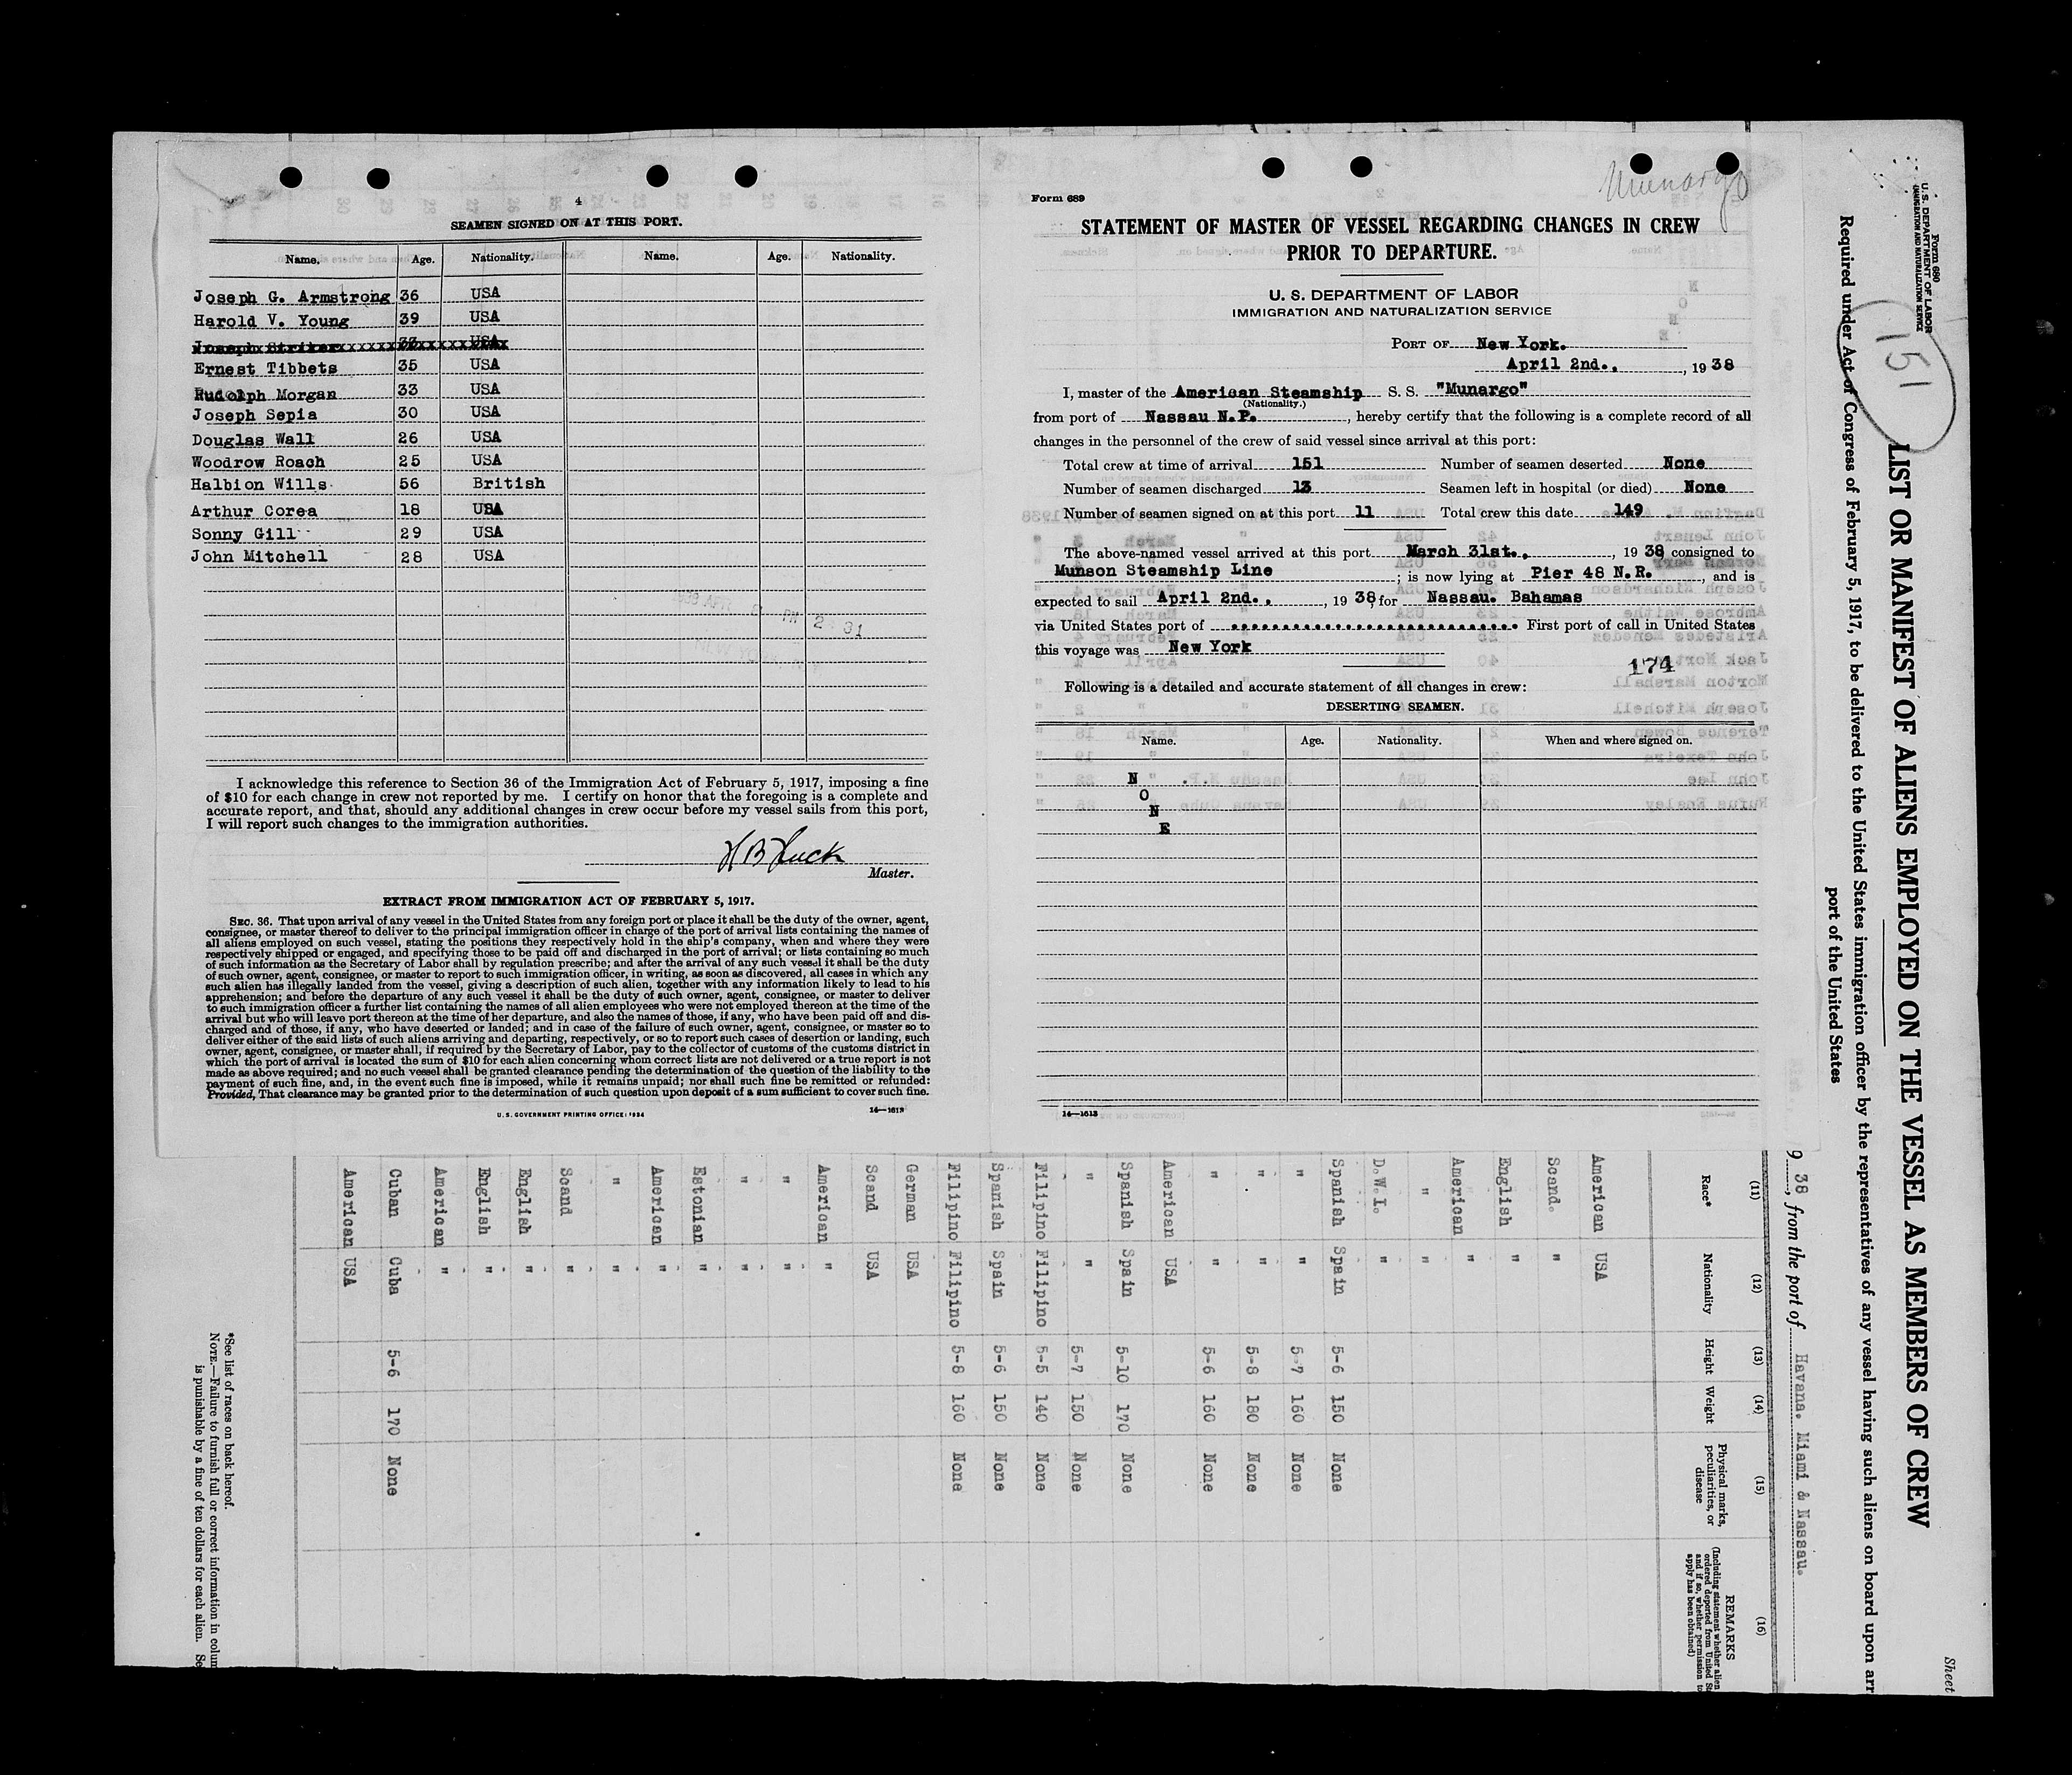 4
SEAMEN SIGNED ON AT THIS PORT.
Name. Age. Nationality. Name. Age. Nationality.
Joseph G. Armstrong 36 USA
Harold V. Young 39 USA
Joseph Striker 33 USA
Ernest Tibbets 35 USA
Rudolph Morgan 33 USA
Joseph Sepia 30 USA
Douglas Wall 26 USA
Woodrow Roach 25 USA
Halbion Wills 56 British
Arthur Corea 18 USA
Sonny Gill 29 USA
John Mitchell 28 USA
PM 2 31
I acknowledge this reference to Section 36 of the Immigration Act of February 5, 1917, imposing a fine
of $10 for each change in crew not reported by me. I certify on honor that the foregoing is a complete and
accurate report, and that, should any additional changes in crew occur before my vessel sails from this port,
I will report such changes to the immigration authorities.
Master.
EXTRACT FROM IMMIGRATION ACT OF FEBRUARY 5, 1917.
SEC. 36. That upon arrival of any vessel in the United States from any foreign port or place it shall be the duty of the owner, agent,
consignee, or master thereof to deliver to the principal immigration officer in charge of the port of arrival lists containing the names of
all aliens employed on such vessel, stating the positions they respectively hold in the ship's company, when and where they were
respectively shipped or engaged, and specifying those to be paid off and discharged in the port of arrival; or lists containing so much
of such information as the Secretary of Labor shall by regulation prescribe; and after the arrival of any such vessel it shall be the duty
of such owner, agent, consignee, or master to report to such immigration officer, in writing, as soon as discovered, all cases in which any
such alien has illegally landed from the vessel, giving a description of such alien, together with any information likely to lead to his
apprehension; and before the departure of any such vessel it shall be the duty of such owner, agent, consignee, or master to deliver
to such immigration officer a further list containing the names of all alien employees who were not employed thereon at the time of the
arrival but who will leave port thereon at the time of her departure, and also the names of those, if any, who have been paid off and dis-
charged and of those, if any, who have deserted or landed; and in case of the failure of such owner, agent, consignee, or master so to
deliver either of the said lists of such aliens arriving and departing, respectively, or so to report such cases of desertion or landing, such
owner, agent, consignee, or master shall, if required by the Secretary of Labor, pay to the collector of customs of the customs district in
which the port of arrival is located the sum of $10 for each alien concerning whom correct lists are not delivered or a true report is not
made as above required; and no such vessel shall be granted clearance pending the determination of the question of the liability to the
payment of such fine, and, in the event such fine is imposed, while it remains unpaid; nor shall such fine be remitted or refunded:
Provided, That clearance may be granted prior to the determination of such question upon deposit of a sum sufficient to cover such fine.
U. S. GOVERNMENT PRINTING OFFICE: 1934 14—1613
Munargo
Form 689
STATEMENT OF MASTER OF VESSEL REGARDING CHANGES IN CREW
PRIOR TO DEPARTURE.
U. S. DEPARTMENT OF LABOR
IMMIGRATION AND NATURALIZATION SERVICE
PORT OF New York.
April 2nd., , 19 38
I, master of the American Steamship S. S. "Munargo"
(Nationality.)
from port of Nassau N.P. , hereby certify that the following is a complete record of all
changes in the personnel of the crew of said vessel since arrival at this port:
Total crew at time of arrival 151 Number of seamen deserted None
Number of seamen discharged 13 Seamen left in hospital (or died) None
Number of seamen signed on at this port 11 Total crew this date 149
The above-named vessel arrived at this port March 31st., , 19 38, consigned to
Munson Steamship Line ; is now lying at Pier 48 N.R. , and is
expected to sail April 2nd., , 19 38, for Nassau. Bahamas
via United States port of First port of call in United States
this voyage was New York
174
Following is a detailed and accurate statement of all changes in crew:
DESERTING SEAMEN.
Name. Age. Nationality. When and where signed on.
N
O
N
E
14—1613
Form 680
U. S. DEPARTMENT OF LABOR
IMMIGRATION AND NATURALIZATION SERVICE
151
Sheet
LIST OR MANIFEST OF ALIENS EMPLOYED ON THE VESSEL AS MEMBERS OF CREW
Required under Act of Congress of February 5, 1917, to be delivered to the United States immigration officer by the representatives of any vessel having such aliens on board upon arr
port of the United States
9 38, from the port of Havana. Miami & Nassau.
(11) (12) (13) (14) (15) (16)
Race* Nationality Height Weight Physical marks, peculiarities, or disease REMARKS
(Including statement whether alien
ordered deported from United St
and if so, whether permission to
apply has been obtained)
American USA
Scand. "
English "
American "
" "
D.W.I. "
Spanish Spain 5-6 150 None
" " 5-7 160 None
" " 5-8 180 None
" " 5-6 160 None
American USA
Spanish Spain 5-10 170 None
" " 5-7 150 None
Filipino Filipino 5-5 140 None
Spanish Spain 5-6 150 None
Filipino Filipino 5-8 160 None
German USA
Scand USA
American "
" "
" "
Estonian "
American "
" "
Scand "
English "
English "
American "
Cuban Cuba 5-6 170 None
American USA
*See list of races on back hereof.
NOTE.—Failure to furnish full or correct information in colum
is punishable by a fine of ten dollars for each alien. Se